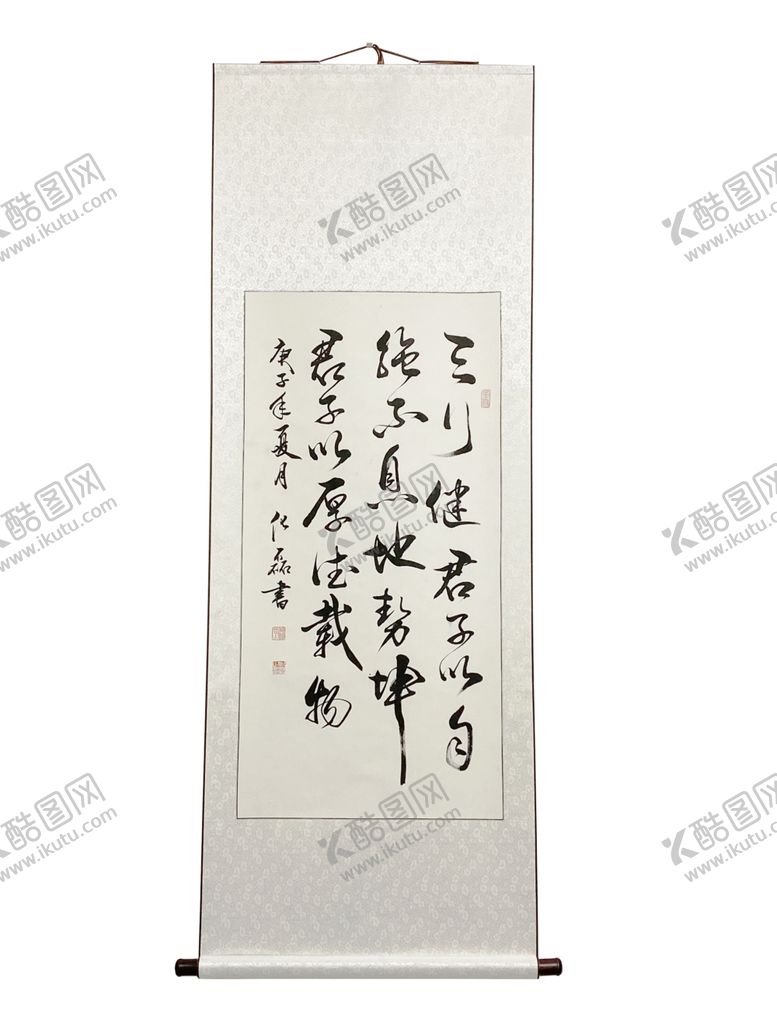 天行健君子以自
强不息地势坤
君子以厚德載物
庚子年夏月 磊書
酷图网
www.ikutu.com
酷图网
www.ikutu.com
酷图网
www.ikutu.com
酷图网
www.ikutu.com
酷图网
www.ikutu.com
酷图网
www.ikutu.com
酷图网
www.ikutu.com
酷图网
www.ikutu.com
酷图网
www.ikutu.com